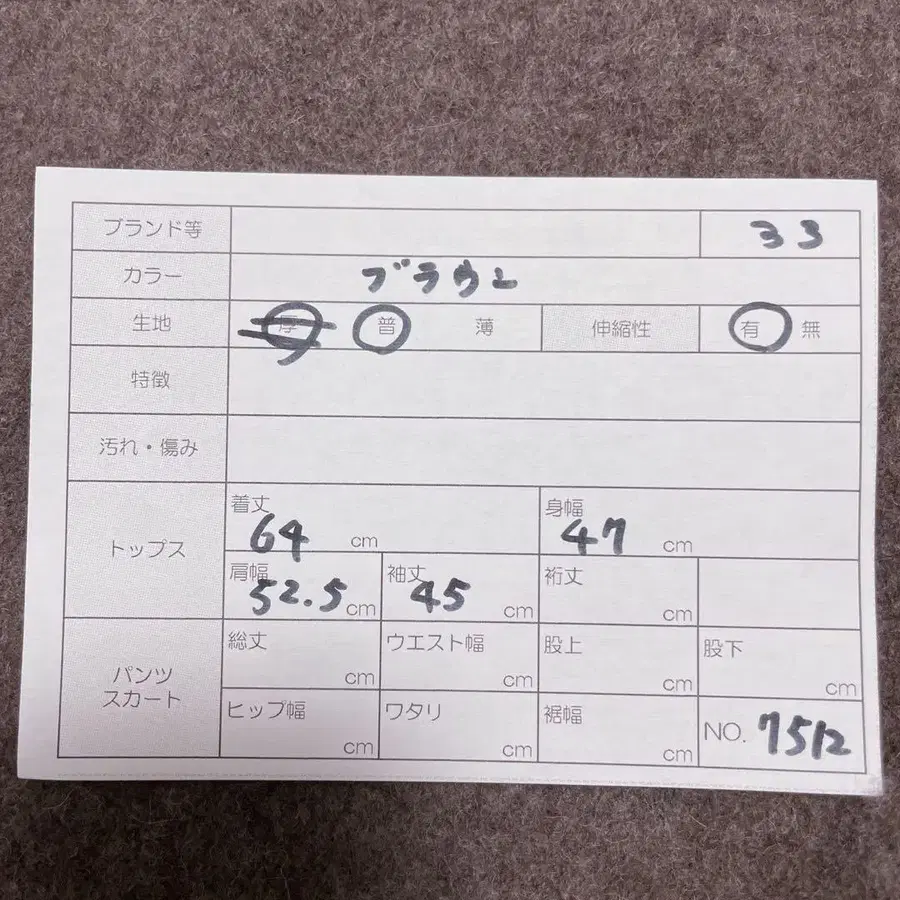 ブランド等 33
カラー ブラウン
生地 厚 普 薄 伸縮性 有 無
特徴
汚れ・傷み
トップス
着丈 64 cm 身幅 47 cm
肩幅 52.5 cm 袖丈 45 cm 裄丈 cm
パンツ
スカート
総丈 cm ウエスト幅 cm 股上 cm 股下 cm
ヒップ幅 cm ワタリ cm 裾幅 cm NO. 7512